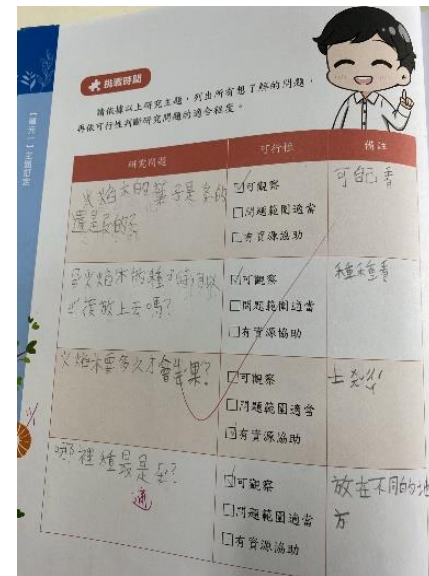 挑戰時間
請依據以上研究主題,列出所有想了解的問題,
再依可行性判斷研究問題的適合程度。
【單元一】主題訂定
研究問題
可行性
備註
火焰木的葉子是多的
還是
☑可觀察
□問題範圍適當
□有資源協助
可自己看
火焰木的種子
後放上去嗎?
☑可觀察
□問題範圍適當
□有資源協助
種種看
火焰木要多久才會結果?
□可觀察
□問題範圍適當
☑有資源協助
上
哪裡種最是
適
☑可觀察
□問題範圍適當
□有資源協助
放在不同的地
方